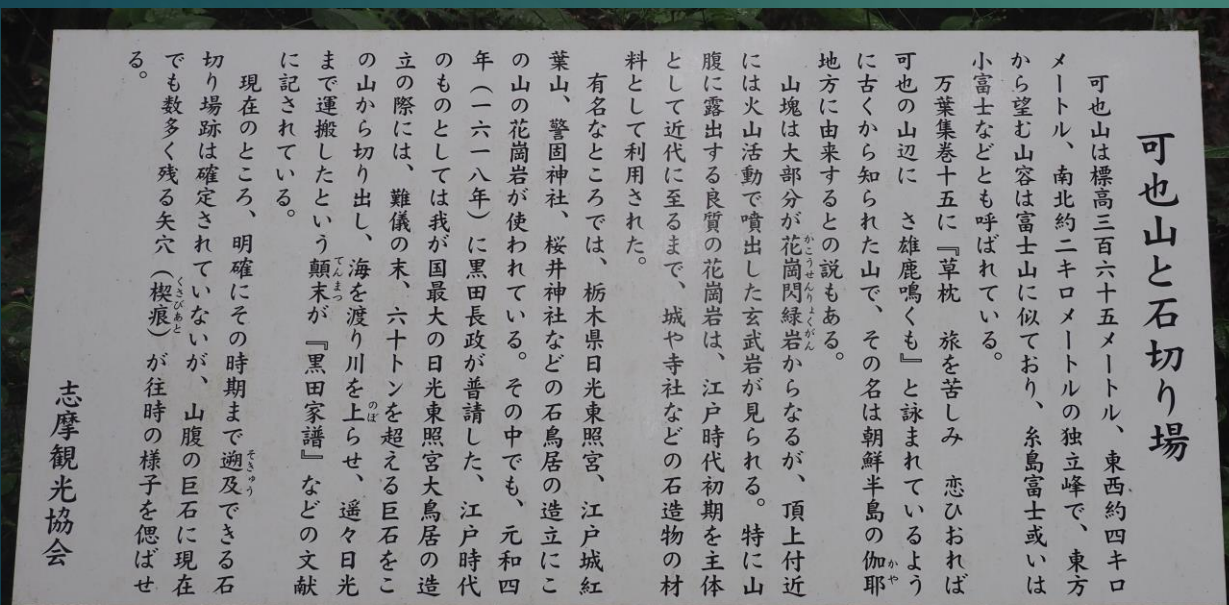 可也山と石切り場
可也山は標高三百六十五メートル、東西約四キロ
メートル、南北約二キロメートルの独立峰で、東方
から望む山容は富士山に似ており、糸島富士或いは
小富士などとも呼ばれている。
万葉集巻十五に『草枕　旅を苦しみ　恋ひおれば
可也の山辺に　さ雄鹿鳴くも』と詠まれているよう
に古くから知られた山で、その名は朝鮮半島の伽耶
地方に由来するとの説もある。
山塊は大部分が花崗閃緑岩からなるが、頂上付近
には火山活動で噴出した玄武岩が見られる。特に山
腹に露出する良質の花崗岩は、江戸時代初期を主体
として近代に至るまで、城や寺社などの石造物の材
料として利用された。
有名なところでは、栃木県日光東照宮、江戸城紅
葉山、警固神社、桜井神社などの石鳥居の造立にこ
の山の花崗岩が使われている。その中でも、元和四
年（一六一八年）に黒田長政が普請した、江戸時代
のものとしては我が国最大の日光東照宮大鳥居の造
立の際には、難儀の末、六十トンを超える巨石をこ
の山から切り出し、海を渡り川を上らせ、遥々日光
まで運搬したという顛末が『黒田家譜』などの文献
に記されている。
現在のところ、明確にその時期まで遡及できる石
切り場跡は確定されていないが、山腹の巨石に現在
でも数多く残る矢穴（楔痕）が往時の様子を偲ばせ
る。
志摩観光協会